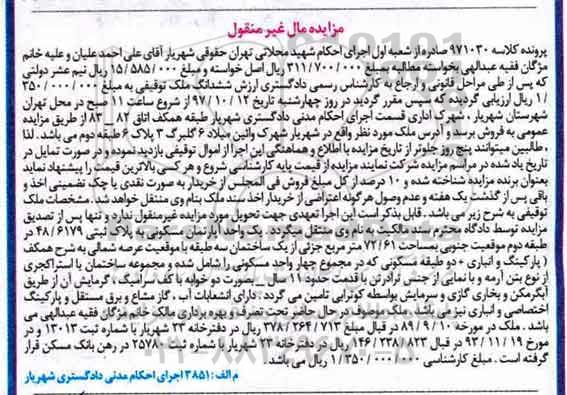 مزایده مال غیر منقول
پرونده کلاسه ۹۷۱۰۳۰ صادره از شعبه اول اجرای احکام شهید محلاتی تهران حقوقی شهریار آقای علی احمد علیان و علیه خانم
مژگان فقیه عبدالهی بخواسته مطالبه مبلغ ۳۱۱/۷۰۰/۰۰۰ ریال اصل خواسته و مبلغ ۱۵/۵۸۵/۰۰۰ ریال نیم عشر دولتی
که پس از طی مراحل قانونی و ارجاع به کارشناس رسمی دادگستری ارزش ششدانگ ملک توقیفی به مبلغ ۳۵۰/۰۰۰/
/۱ ریال ارزیابی گردیده که سپس مقرر گردید در روز چهارشنبه تاریخ ۹۷/۱۰/۱۲ از شروع ساعت ۱۱ صبح در محل تهران
شهرستان شهریار ، شهرک اداری قسمت اجرای احکام مدنی دادگستری شهریار طبقه همکف اتاق ۸۲ _ ۸۳ از طریق مزایده
عمومی به فروش برسد و آدرس ملک مورد نظر واقع در شهریار شهرک وائین میلاد ۶ گلبرگ ۳ پلاک ۶ طبقه دوم می باشد . لذا
، طالبین میتوانند پنج روز جلوتر از تاریخ مزایده با اطلاع و هماهنگی این اجرا از اموال توقیفی بازدید نموده و در صورت تمایل در
تاریخ یاد شده در مراسم مزایده شرکت نمایند مزایده از قیمت پایه کارشناسی شروع و هر کسی بالاترین قیمت را پیشنهاد نماید
بعنوان برنده مزایده شناخته شده و ۱۰ درصد از کل مبلغ فروش فی المجلس از خریدار به صورت نقدی یا چک تضمینی اخذ و
باقی پس از گذشت یک هفته و عدم وصول هر گونه اعتراضی از خریدار اخذ سند ملک بنام وی منتقل خواهد شد. مشخصات ملک
توقیفی به شرح زیر می باشد . قابل بذکر است این اجرا تعهدی جهت تحویل مورد مزایده غیر منقول ندارد و تنها پس از تصدیق
مزایده توسط دادگاه محترم سند مالکیت به نام وی منتقل میگردد . یک واحد آپارتمان مسکونی به پلاک ثبتی ۴۸/۶۱۷۹ در
طبقه دوم موقعیت جنوبی بمساحت ۷۲/۶۱ متر مربع جزئی از یک ساختمان سه طبقه با موقعیت عرصه شمالی به شرح همکف
( پارکینگ و انباری + دو طبقه مسکونی که در مجموع چهار واحد مسکونی را شامل شده و مجموعه ساختمان با استراکچری
از نوع بتن آرمه و با نمایی از جنس تراورتن با قدمت حدود ۱۱ سال _ بصورت دو خوابه با کف سرامیک ، گرمایش آن از طریق
آبگرمکن و بخاری گازی و سرمایش بواسطه کولرآبی تامین می گردد . دارای انشعابات آب ، گاز مشاع و برق مستقل و پارکینگ
اختصاصی و انباری نیز می باشد . ملک موصوف در حال حاضر تحت تصرف و بهره برداری مالک خانم مژگان فقیه عبدالهی می
باشد . ملک در مورخه ۸۹/۹/۱۰ در قبال مبلغ ۳۷۸/۲۶۴/۷۱۳ ریال در دفترخانه ۲۳ شهریار با شماره ثبت ۱۳۰۱۳ و در
مورخ ۹۳/۱۱/۱۹ در قبال ۱۴۶/۲۳۸/۸۲۳ ریال در دفترخانه ۲۳ شهریار با شماره ثبت ۲۵۷۸۰ در رهن بانک مسکن قرار
گرفته است . مبلغ کارشناسی ۱/۳۵۰/۰۰۰/۰۰۰ ریال می باشد .
م الف : ۳۸۵۱ اجرای احکام مدنی دادگستری شهریار